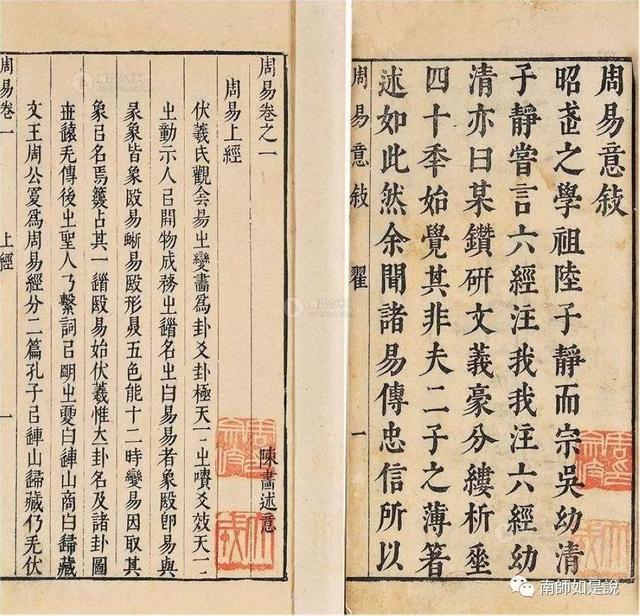 周易意敍
昭之學祖陸子靜而宗吳幼清
子靜嘗言六經注我我注六經幼
清亦曰某鑽研文義豪分縷析埀
四十季始覺其非夫二子之薄著
述如此然余聞諸易傳忠信所以
周易意敍 翟 一
周易卷之一
周易上經
陳畫述意
伏羲氏觀侌昜㞢變畫爲卦爻卦極天丅㞢嘖爻效天丅
㞢動示人㠯開物成務㞢道名㞢曰易易者象殹卽易與
彖象皆象殹易蜥易殹形五色能十二時變易因取其
象㠯名焉占其一道殹易始伏羲惟大卦名及諸卦圖
卋遠无傳後㞢聖人乃繫詞㠯朙㞢夓曰連山商曰歸藏
文王周公夓爲周易經分二篇孔子㠯連山歸藏仍无伏
周易卷一 上經 一
南師如是說